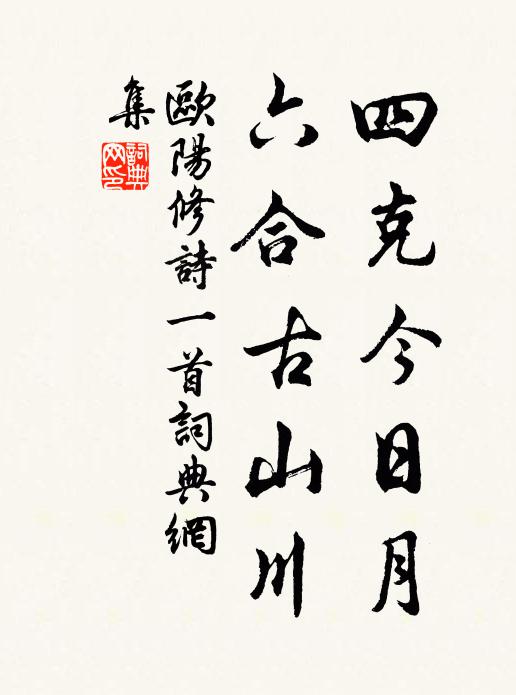 四克今日月
六合古山川
歐陽修詩一首詞典網
集
詞典
网印